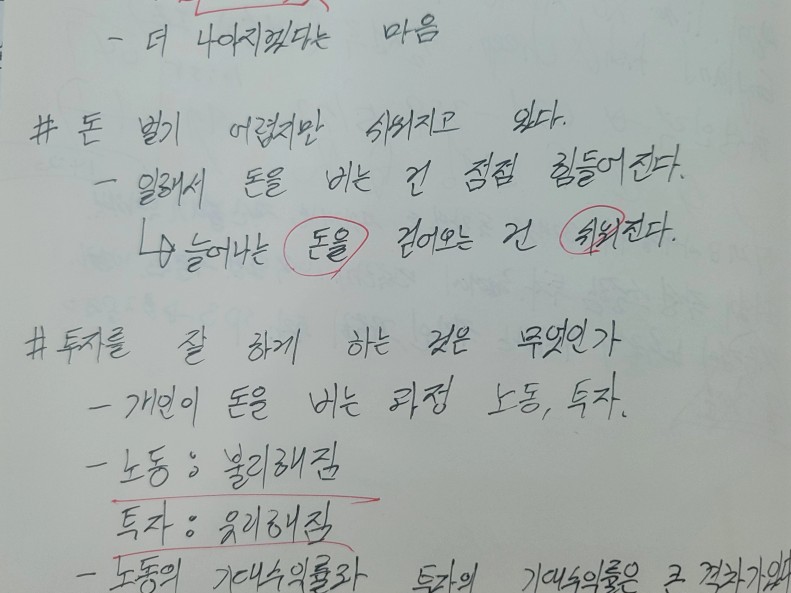 - 더 나아지겠다는 마음
# 돈 벌기 어렵지만 쉬워지고 있다.
- 일해서 돈을 버는 건 점점 힘들어진다.
↳ 늘어나는 돈을 걷어오는 건 쉬워진다.
# 투자를 잘 하게 하는 것은 무엇인가
- 개인이 돈을 버는 과정 노동, 투자.
- 노동 : 불리해짐
투자 : 유리해짐
- 노동의 기대수익률과 투자의 기대수익률은 큰 격차가 있다